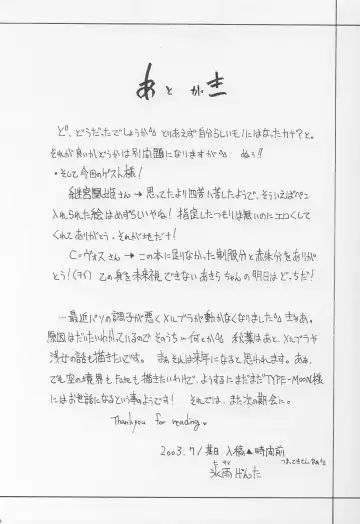 あとがき
ど、どうだったでしょうか^^; とりあえず自分らしいモノにはなったカナ?と。
それが良いかどうかは別問題になりますが^^; ぬぅ!!
・そして今回のゲスト様!
さん → 思ってたより四苦八苦したようで、そういえばペン
入れられた絵はめずらしいやね! 指定したつもりは無いのにエロくして
くれてありがとう。それが地だナ!
C=ヴォスさん → この本に足りなかった制服分と赤味分をありが
とう! (ヲイ) 乙の身を未来視できないあきらちゃんの明日はどっちだ!
…最近パソの調子が悪くメルブラが動かなくなりました^^; まぁあ。
原因はだいたいわかっているのでそのうち…何とか^^; 秋葉はあと、メルブラや
浅女の話も描きたいです。 まぁそんは来年になると思われます。あぁ、
でも空の境界もFateも描きたいわけで、ようするにまだまだTYPE-MOON様
にはお世話になるという事のようです! それでは、また次の期会に。
Thankyou for reading
2003.7/某日 入稿▲時間前
氷雨げんた